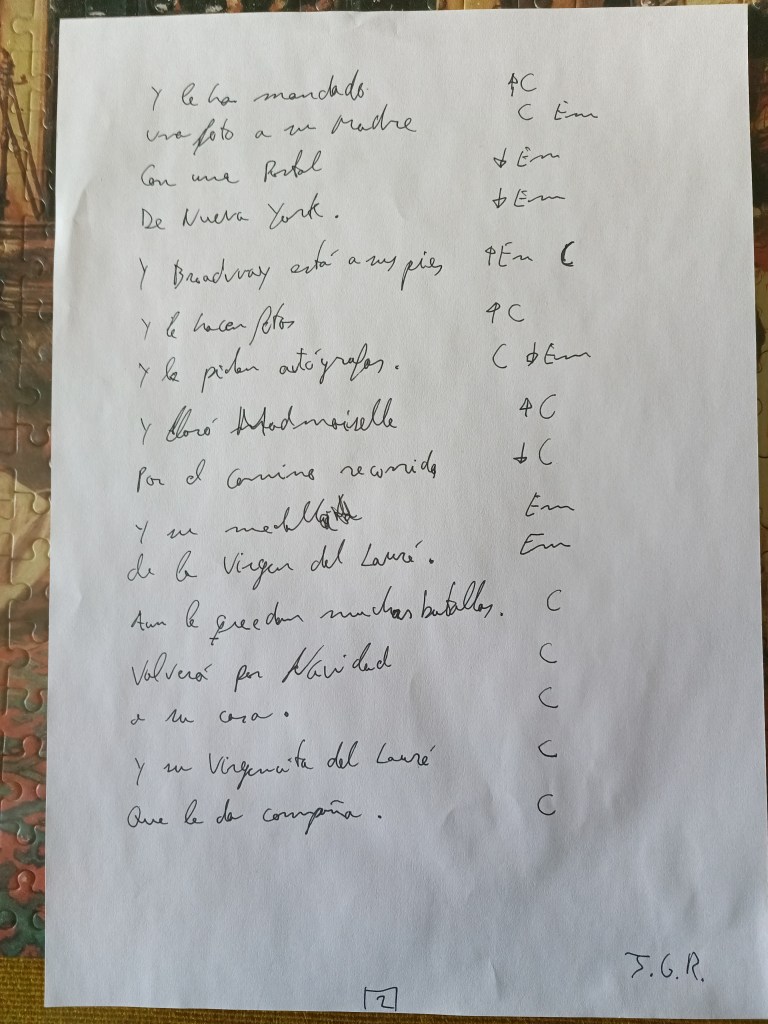 Y le ha mandado ↑C
una foto a su Madre C Em
Con una Postal ↓Em
De Nueva York. ↓Em
Y Broadway está a sus pies ↑Em C
Y le hacen fotos ↑C
Y le piden autógrafos. C ↓Em
Y lloró Madmoiselle ↑C
Por el camino recorrido ↓C
Y su medalla Em
de la Virgen del Lauré. Em
Aun le queedan muchas batallas. C
Volverá por Navidad C
a su casa. C
Y su Virgencita del Lauré C
Que le da compaña. C
J.G.R.
2